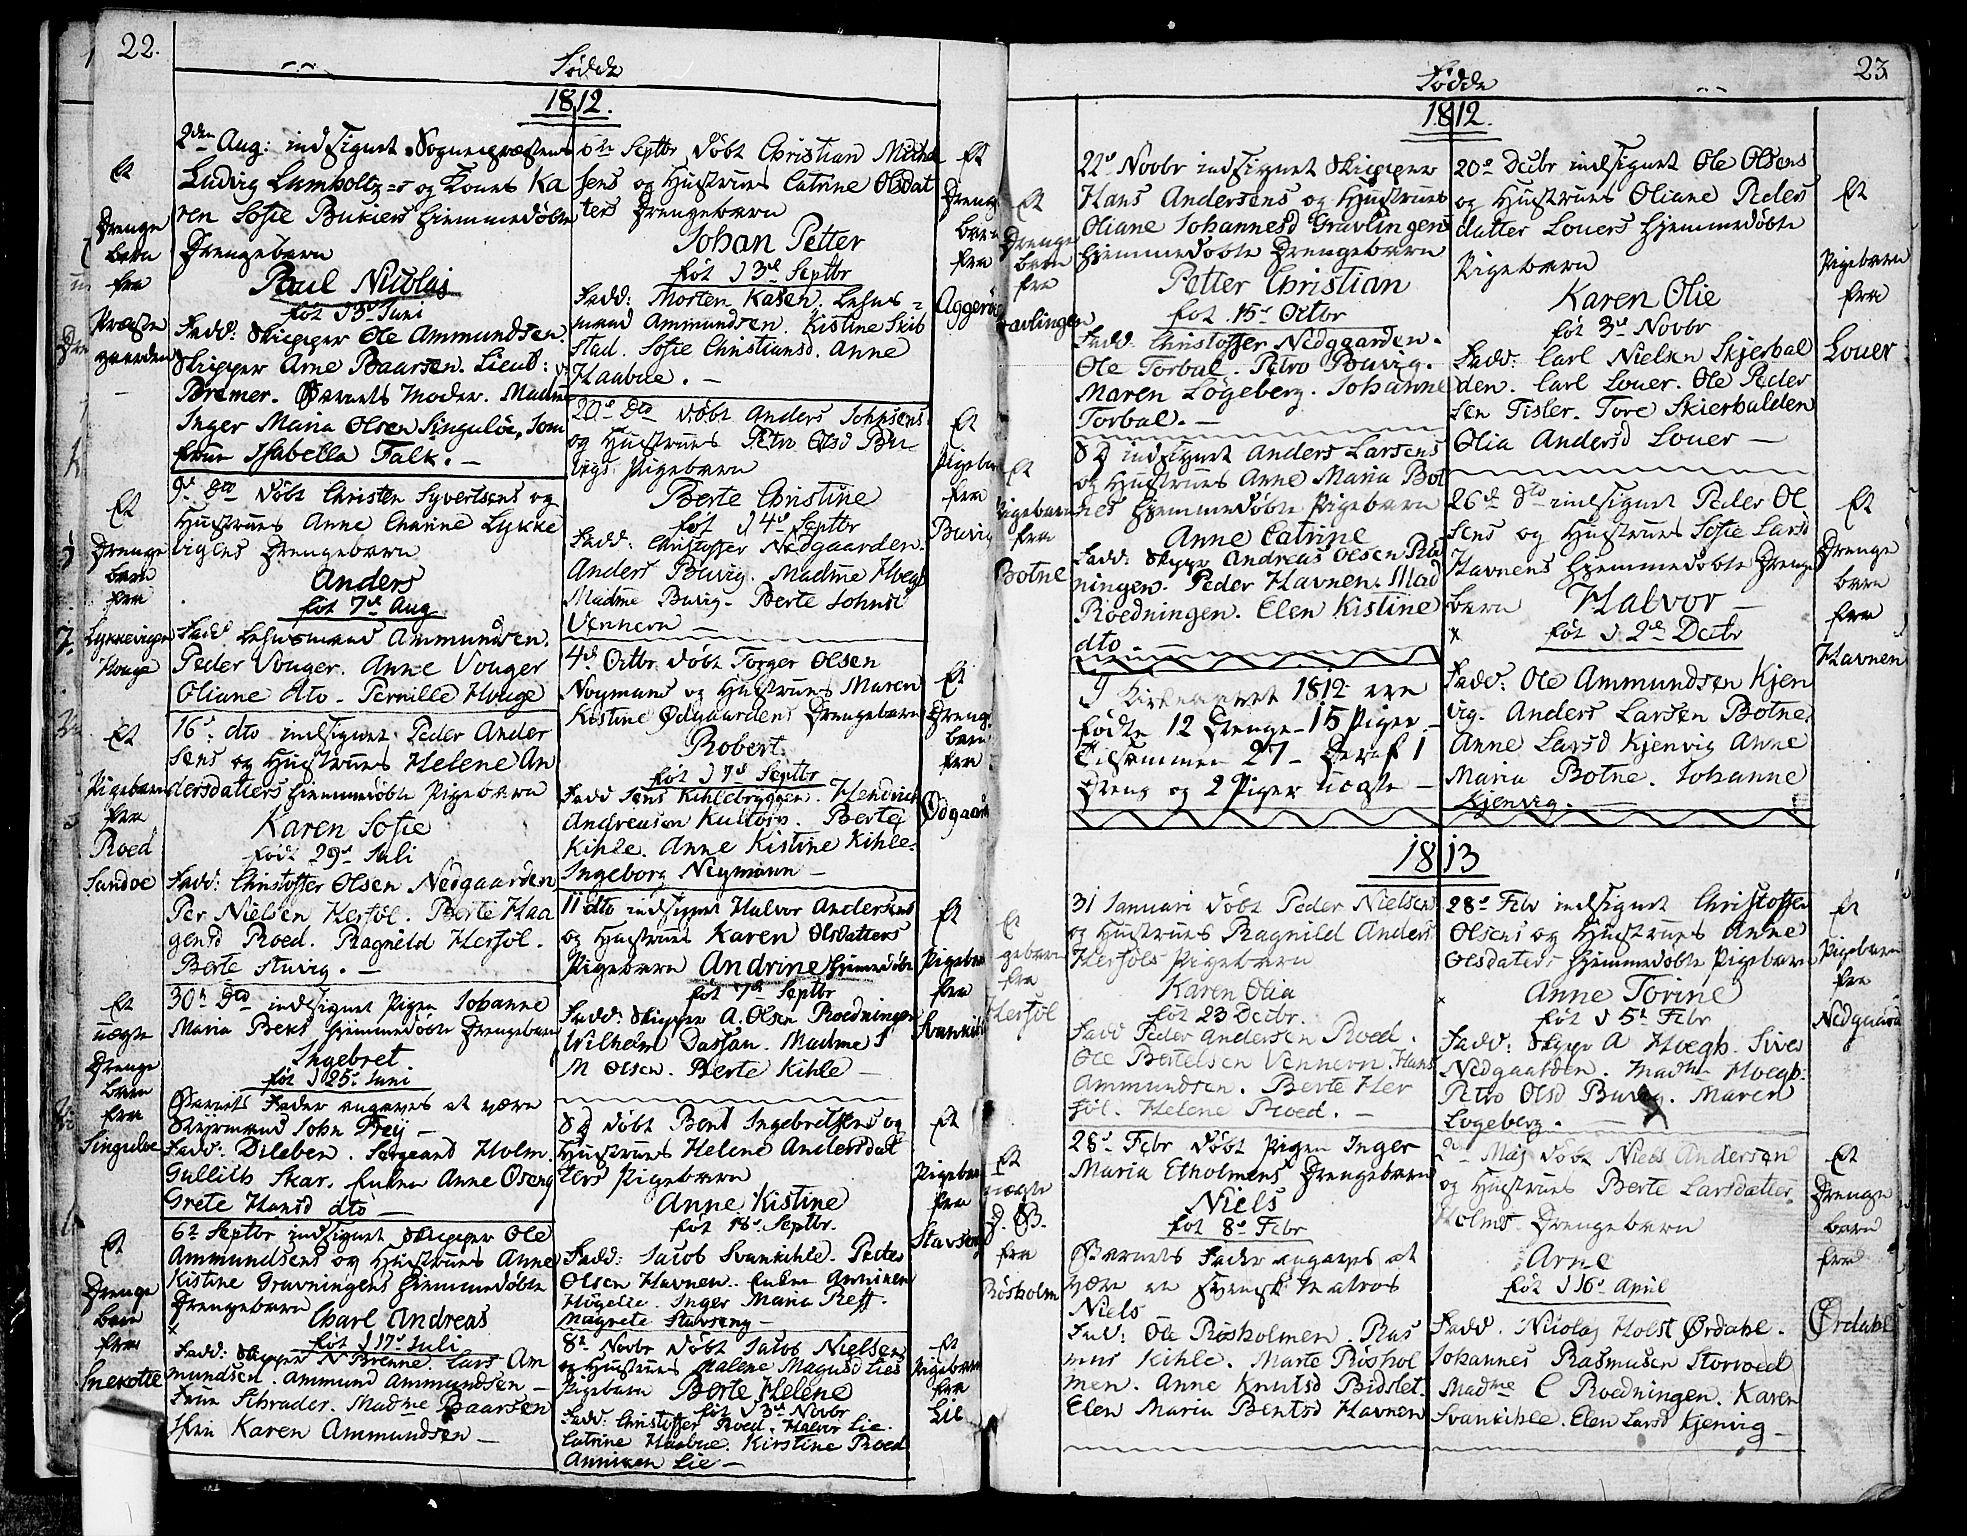 22.
Fødde
1812.
Et
Drenge
barn
fra
Præste
gaarden
2den Aug: indsignet Sognepræstens
Ludvig Lumholtz=s og Kones Ka
ren Sofie Buriers hjemmedøbte
Drengebarn
Paul Nicolaj
føt 13d Juni
Fadd: Skipper Ole Ammundsen.
Skipper Arne Baarsen. Lieut:
Bremer. Barnets Moder. Madme
Inger Maria Olsen Singuløe, Jom
frue Isabella Falk. –
Et
Drenge
barn
fra
Lykkevigen
Houge
9d dto døbt Christen Syvertsens og
Hustrues Anne Chatrine Lykke
vigens Drengebarn
Anders
føt 7d Aug
Fadd Lehnsmand Ammundsen.
Peder Vouger. Anne Vouger
Oliane dto – Pernille Houge
Et
Pigebarn
fra
Roed
Sandøe
16d dto indsignet Peder Ander
sens og Hustrues Helene An
dersdatters hjemmedøbte Pigebarn
Karen Sofie
født 29d Juli
Fadd: Christoffer Olsen Nedgaarden
Per Nielsen Hersøl. Berte Haa
gensd Roed. Ragnild Hersøl.
Berte Stuvig. –
Et
uægte
Drenge
barn
fra
Singuløe
30te dto indsignet Pigen Johanne
Maria Beks hjemmedøbte Drengebarn
Ingebret
føt d 25d Juni
Barnets Fader angaves at være
Styrmand John Frey –
Fadd: Dileben. Sergeant Holm.
Gullich Skar. Enken Anne Øseng
Grete Hansd dto –
Et
Drenge
barn
fra
Snekotte
6te Septbr indsignet Skipper Ole
Ammundsens og Hustrues Anne
Kistine Gravningens hjemmedøbte
Drengebarn
Charl Andreas
føt d 17d Juli
Fadd: Skipper N Brenne. Lars Am
mundsen. Ammund Ammundsen –
Frue Schrader. Madme Baarsen
Jfru Karen Ammundsen –
6te Septbr døbt Christian Mathi
sens og Hustrues Catrine Olsdat
ters Drengebarn
Johan Petter
føt d 3d Septbr
Fadd: Morten Kasen. Lehns =
mand Ammundsen. Kistine Skib
stad. Sofie Christiansd. Anne
Haabue. –
Et
Dreng
barn
fra
Aggerøe
20d dto døbt Anders Johnsens
og Hustrues Petro Olsd Bu
vigs Pigebarn
Berte Christine
føt d 4d Septbr
Fadd: Christoffer Nedgaarden.
Anders Buvig. Madme Hoegh
Madme Buvig – Berte Johnsd
Venhern –
Et
Pigebarn
fra
Buvig
4d Octbr døbt Torger Olsen
Noymans og Hustrues Maren
Kistine Ødgaardens Drengebarn
Robert
føt d 17d Septbr
Fadd Jens Kihlebryggen. Hendrich
Andreasen Kultorv. Berte
Kihle. Anne Kistine Kihle.
Ingeborg Neymann –
Et
Dreng
barn
fra
Ødgaard
11 dto indsignet Halvor Andersens
og Hustrues Karen Olsdatters
Pigebarn Andrine hjemedøbt
føt 7de Septbr
Fadd: Skipper A. Olsen Roedningen
Wilhelm Dassan. Madme
M Olsen. Berte Kihle –
Et
Pigebarn
fra
Svankihl
S D døbt Bent Ingebretsens og
Hustrues Helene Andersdat
ters Pigebarn
Anne Kistine
føt 18d Septbr.
Fadd: Jacob Svankihle. Peter
Olsen Havnen. Enken Anniken
Høgelie. Inger Maria Reff.
Magrete Stavseng –
Et
Pigebarn
fra
Stavseng
8de Novbr døbt Jacob Nielsens
og Hustrues Malene Magnusd Lies
Pigebarn Berte Helene
føt d 3d Novbr
Fadd: Christoffer Roed. Halvor Lie.
Catrine Haabue. Kirstine Roed
Anniken Lie –
Et
Pigebarn
fra
Lie
23
Fødde
1812.
Et
Drenge
barn
fra
Gravlingen
22d Novbr indsignet Skipper
Hans Andersens og Hustrues
Oliane Johannesd Gravlingens
hjemmedøbte Drengebarn
Petter Christian
føt 15d Octbr
Fadd: Christoffer Nedgaarden.
Ole Torbal. Petro Buvig.
Maren Løgeberg. Johanne
Torbal. –
Et
Pigebarn
fra
Botne
S D indsignet Anders Larsens
og Hustrues Anne Maria Bot
nes hjemmedøbte Pigebarn
Anne Catrine
Fadd: Skippr Andreas Olsen Roe
ningen. Peder Havnen. Mad
Roedningen. Elen Kistine
dto –
I Kirkeaaret 1812 ere
fødte 12 Drenge – 15 Piger –
Tilsammen 27 – Deraf 1
Dreng og 2 Piger uægte –
20d Decbr indsignet Ole Olsens
og Hustrues Oliane Peders
datter Louers hjemmedøbte
Pigebarn
Karen Olie
føt 3d Novbr
Fadd: Carl Nielsen Skjerbal
den. Carl Louer. Ole Peder
sen Tisler. Tore Skierbalden
Olia Andersd Louer –
Et
Pigebarn
fra
Louer
26d dto indsignet Peder Ol
sens og Hustrues Sofie Larsd
Havnens hjemmedøbte Drenge
barn Halvor –
føt d 2d Decbr
Fadd: Ole Ammundsen Kjen
vig. Anders Larsen Botne.
Anne Larsd Kjenvig Anne
Maria Botne. Johanne
Kjenvig. –
Et
Drenge
barn
fra
Havnen
1813
Et
Pigebarn
fra
Hersøl
31 Januari døbt Peder Nielsens
og Hustrues Ragnild Anders
Hersøls Pigebarn
Karen Olia
føt 23 Decbr.
Fadd Peder Andersen Roed.
Ole Bertelsen Venhern. Hans
Ammundsen. Berte Her
søl. Helene Roed. –
Et
uægte
D. B.
fra
Røsholm
28d Febr døbt Pigen Inger
Maria Etholmens Drengebarn
Niels
føt 8d Febr
Barnets Fader angaves at
være en Svensk Matros
Niels
Fad: Ole Røsholmen. Ras
mus Kihle. Marte Røshol
men. Anne Knutsd Bidslet.
Elen Maria Bentsd Havnen
28d Febr indsignet Christoffer
Olsens og Hustrues Anne
Olsdatters hjemmedøbte Pigebarn
Anne Torine
føt d 5d Febr
Fadd: Skippr A Hoegh. Siver
Nedgaarden. Madme Hoegh.
Petro Olsd Buvig. Maren
Løgeberg. –
Et
Pigebarn
fra
Nedgaard
2den Maj døbt Niels Andersen
og Hustrues Berte Larsdatter
Holms Drengebarn
Arne
føt d 16d April
Fadd. Nicolaj Holst Ørdahl.
Johannes Rasmusen Storved
Madme C Roedningen. Karen
Svankihle. Elen Larsd Kjenvig –
Et
Drenge
barn
fra
Ørdahl